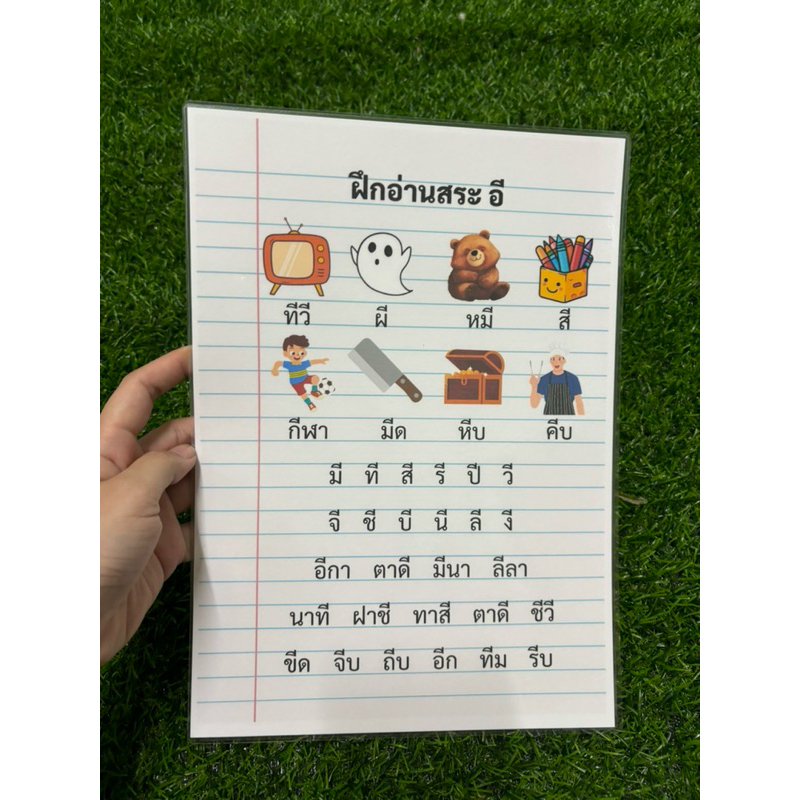 ฝึกอ่านสระ อี
ทีวี ผี หมี สี
กีฬา มีด หีบ คีบ
มี ที สี รี ปี วี
จี ชี บี นี ลี งี
อีกา ตาดี มีนา ลีลา
นาที ฝาชี ทาสี ตาดี ชีวี
ขีด จีบ ถีบ อีก ทีม รีบ